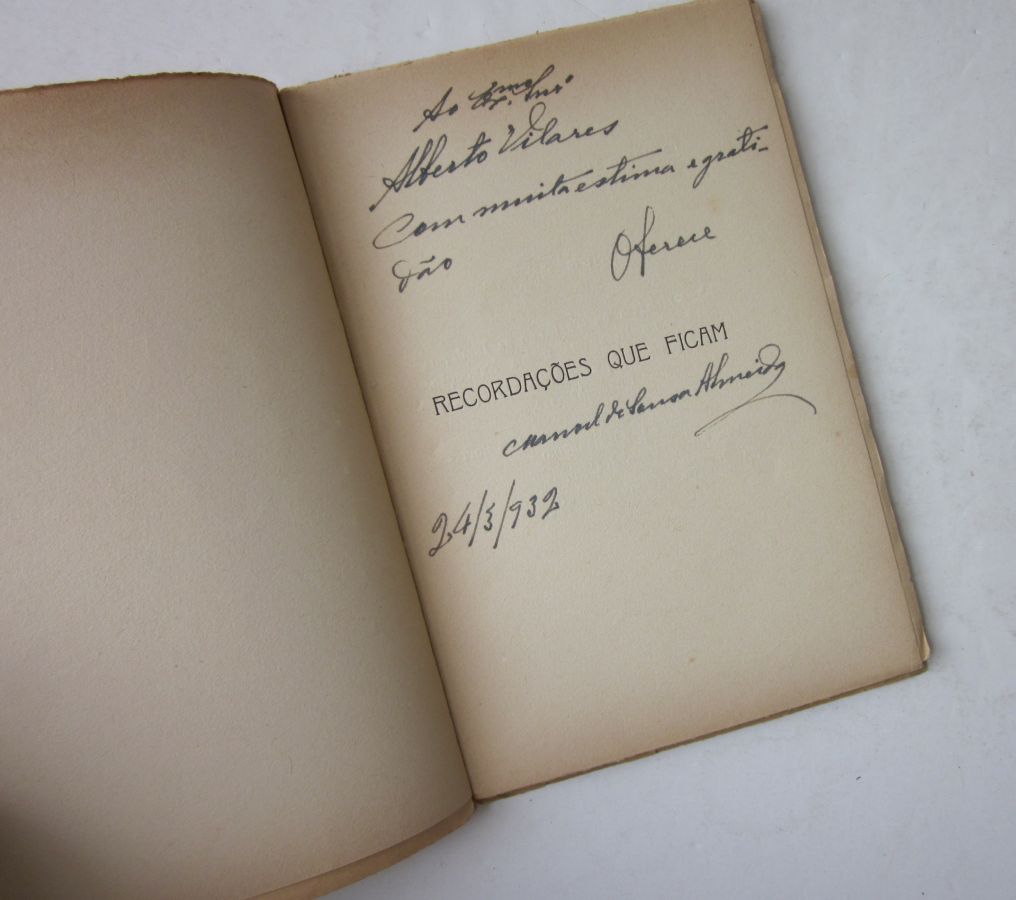 Ao
Alberto Vilares
Com muita estima e grati-
dão Oferece
RECORDAÇÕES QUE FICAM
Manuel de Sousa Almeida
24/3/932